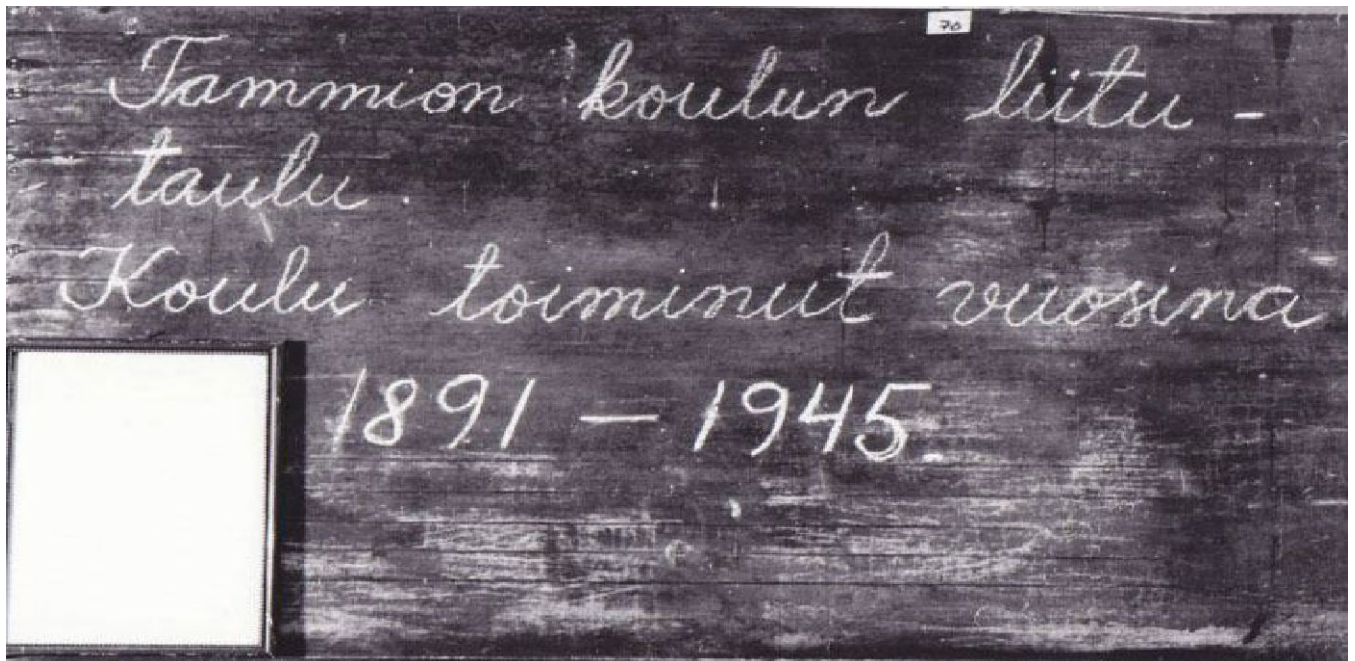 70
Tammion koulun liitu -
taulu.
Koulu toiminut vuosina
1891 — 1945.